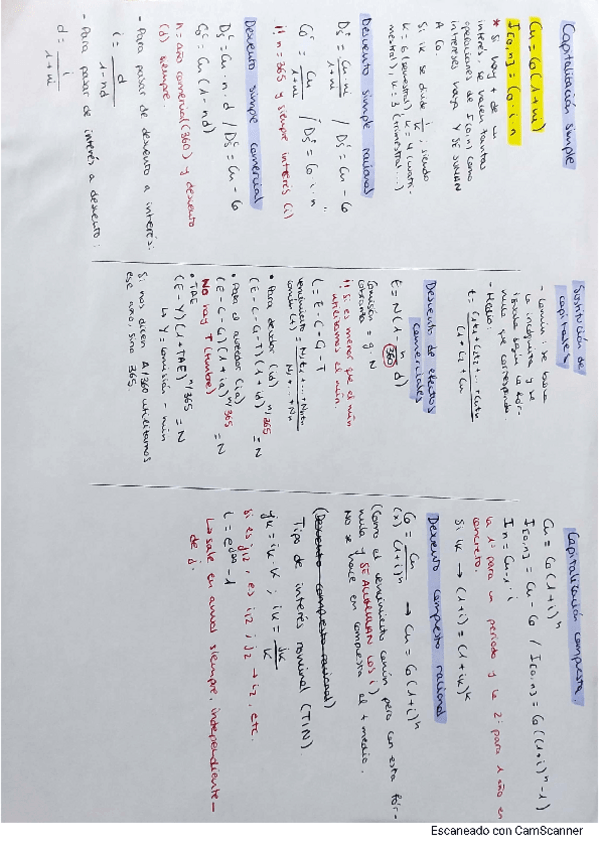 Capitalización simple
Cn = C0 (1 + ni)
I[0,n] = C0 · i · n
* Si hay + de un
interés, se hacen tantas
operaciones de I(0,n) como
intereses haya Y SE SUMAN
A C0.
Si ik se divide i/k, siendo
k=6 (bimestral) k=4 (cuatri-
mestral), k=3 (trimestral...)
Descuento simple racional
Ds = Cn·n·i / 1+ni / Ds = Cn - C0
C0 = Cn / 1+ni / Ds = C0 · i · n
!! n = 365 y siempre interés (i)
Descuento simple comercial
Ds = Cn · n · d / Ds = Cn - C0
C0 = Cn (1 - nd)
n = año comercial (360) y descuento
(d) siempre.
- Para pasar de descuento a interés:
i = d / 1-nd
- Para pasar de interés a descuento:
d = i / 1+ni
Sustitución de
capitales
- Común: se busca
la incógnita y se
iguala según la fór-
mula que corresponda
- Medio:
t = C1t1 + C2t2 + ... + Cntn / C1 + C2 + Cn
Descuento de efectos
comerciales
E = N (1 - n/365 d)
Comisión = g · N
cobranza
!! Si es menor que el min
utilizamos el min.
L = E - C - G - T
vencimiento común (t) = N1t1 + ... + Nntn / N1 + ... + Nn
• Para deudor (id)
(E - C - G - T) (1 + id)^n/365 = N
• Para el acreedor (ia)
(E - C - G) (1 + ia)^n/365 = N
No hay T (timbre)
• TAE
(E - Y) (1 + TAE)^n/365 = N
↳ Y = comisión - min
Si nos dicen A/360 utilizamos
ese año, sino 365.
Capitalización compuesta.
Cn = C0 (1 + i)^n
I[0,n] = Cn - C0 / I[0,n] = C0 ((1+i)^n - 1)
In = Cn-1 · i
La 1ª para un período y la 2ª para 1 año en
concreto.
Si ik → (1 + i) = (1 + ik)^k
Descuento compuesto racional
C0 = Cn / (1+i)^n → Cn = C0 (1 + i)^n
(x)
(Como el vencimiento común pero con esta fór-
mula y SE ACUMULAN LOS i)
No se hace en compuesta el + medio.
(Descuento compuesto racional)
Tipo de interés nominal (TIN).
jk = ik · k ; ik = jk/k
Si es j12, es i12 ; j2 → i2, etc.
i = e^j∞ - 1
↳ sale en anual siempre, independiente-
de j.
Escaneado con CamScanner